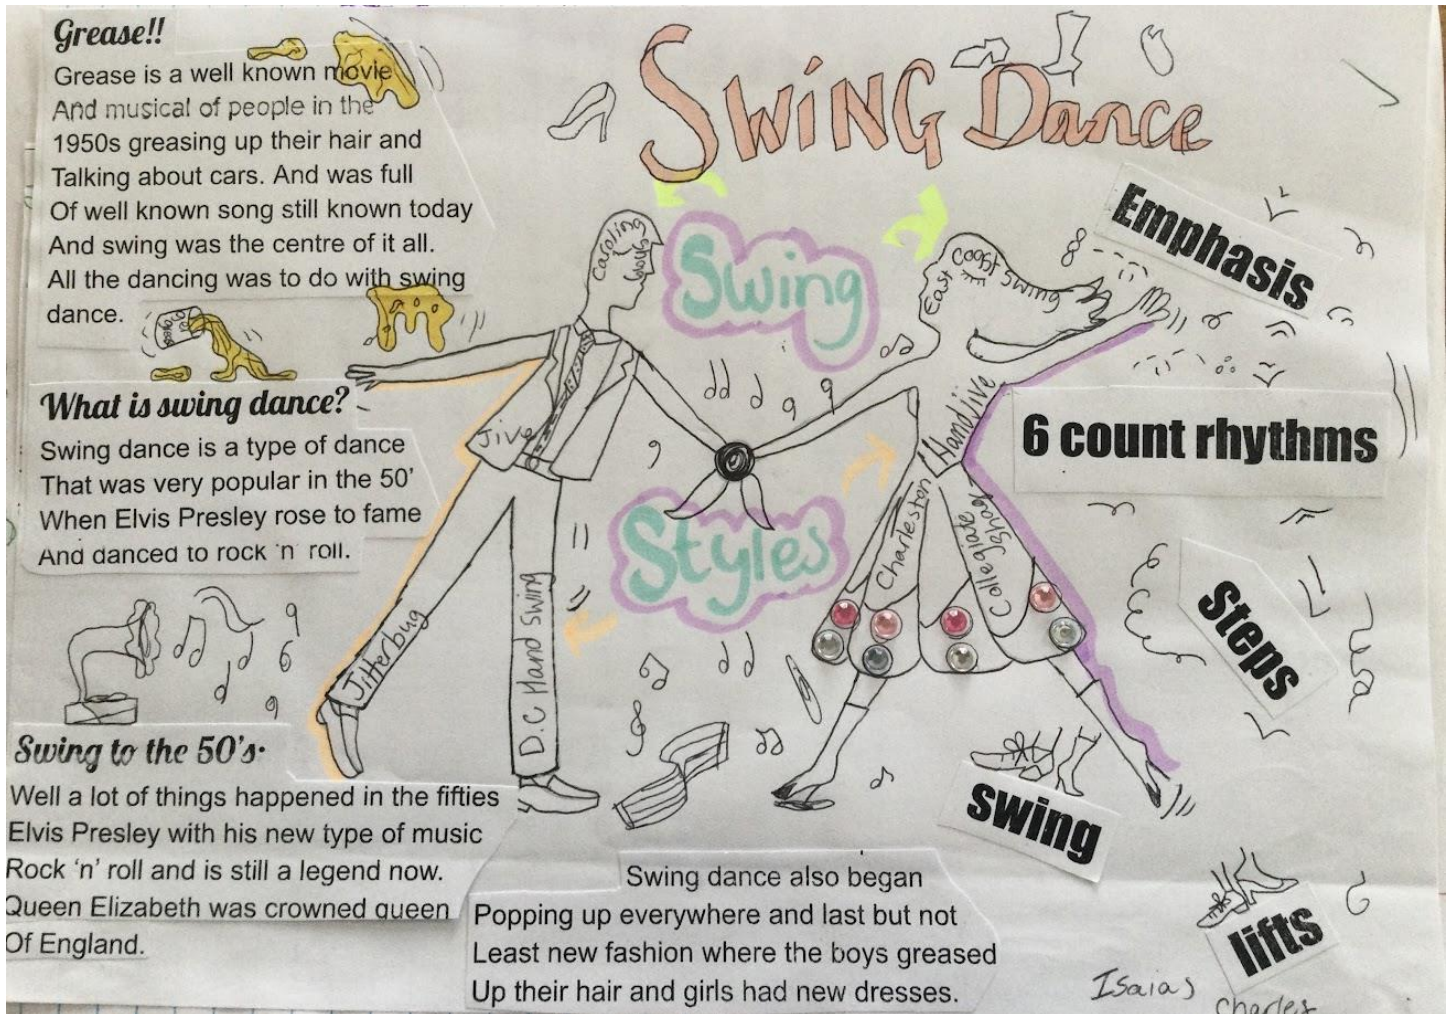 SWING Dance
Grease!!
Grease is a well known movie
And musical of people in the
1950s greasing up their hair and
Talking about cars. And was full
Of well known song still known today
And swing was the centre of it all.
All the dancing was to do with swing
dance.
What is swing dance?
Swing dance is a type of dance
That was very popular in the 50'
When Elvis Presley rose to fame
And danced to rock 'n' roll.
Swing to the 50's.
Well a lot of things happened in the fifties
Elvis Presley with his new type of music
Rock 'n' roll and is still a legend now.
Queen Elizabeth was crowned queen
Of England.
Swing dance also began
Popping up everywhere and last but not
Least new fashion where the boys greased
Up their hair and girls had new dresses.
Swing
Styles
Jive
Jitterbug
D.C Hand swing
East Coast Swing
Hand Jive
Charleston
Collegiate
Shag
Emphasis
6 count rhythms
Steps
swing
lifts
Isaias
Charles